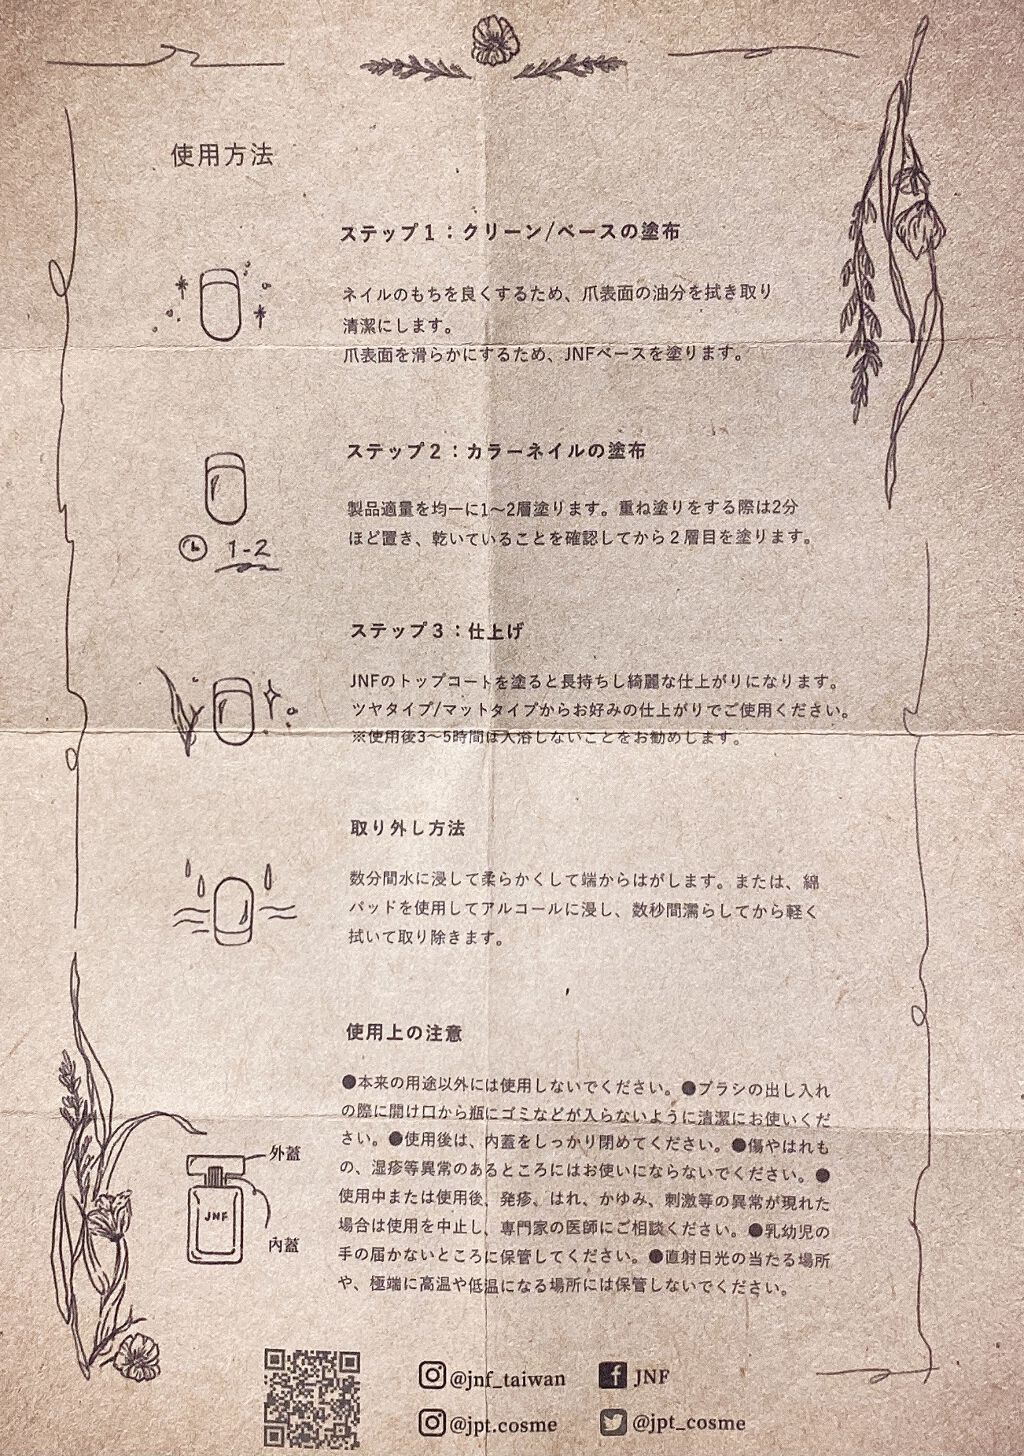 使用方法
ステップ1：クリーン/ベースの塗布
ネイルのもちを良くするため、爪表面の油分を拭き取り
清潔にします。
爪表面を滑らかにするため、JNFベースを塗ります。
ステップ2：カラーネイルの塗布
製品適量を均一に1～2層塗ります。重ね塗りをする際は2分
ほど置き、乾いていることを確認してから2層目を塗ります。
1-2
ステップ3：仕上げ
JNFのトップコートを塗ると長持ちし綺麗な仕上がりになります。
ツヤタイプ/マットタイプからお好みの仕上がりでご使用ください。
※使用後3～5時間は入浴しないことをお勧めします。
取り外し方法
数分間水に浸して柔らかくして端からはがします。または、綿
パッドを使用してアルコールに浸し、数秒間濡らしてから軽く
拭いて取り除きます。
使用上の注意
●本来の用途以外には使用しないでください。●ブラシの出し入れ
の際に開け口から瓶にゴミなどが入らないように清潔にお使いくだ
さい。●使用後は、内蓋をしっかり閉めてください。●傷やはれも
の、湿疹等異常のあるところにはお使いにならないでください。●
使用中または使用後、発疹、はれ、かゆみ、刺激等の異常が現れた
場合は使用を中止し、専門家の医師にご相談ください。●乳幼児の
手の届かないところに保管してください。●直射日光の当たる場所
や、極端に高温や低温になる場所には保管しないでください。
外蓋
JNF
內蓋
@jnf_taiwan
JNF
@jpt.cosme
@jpt_cosme